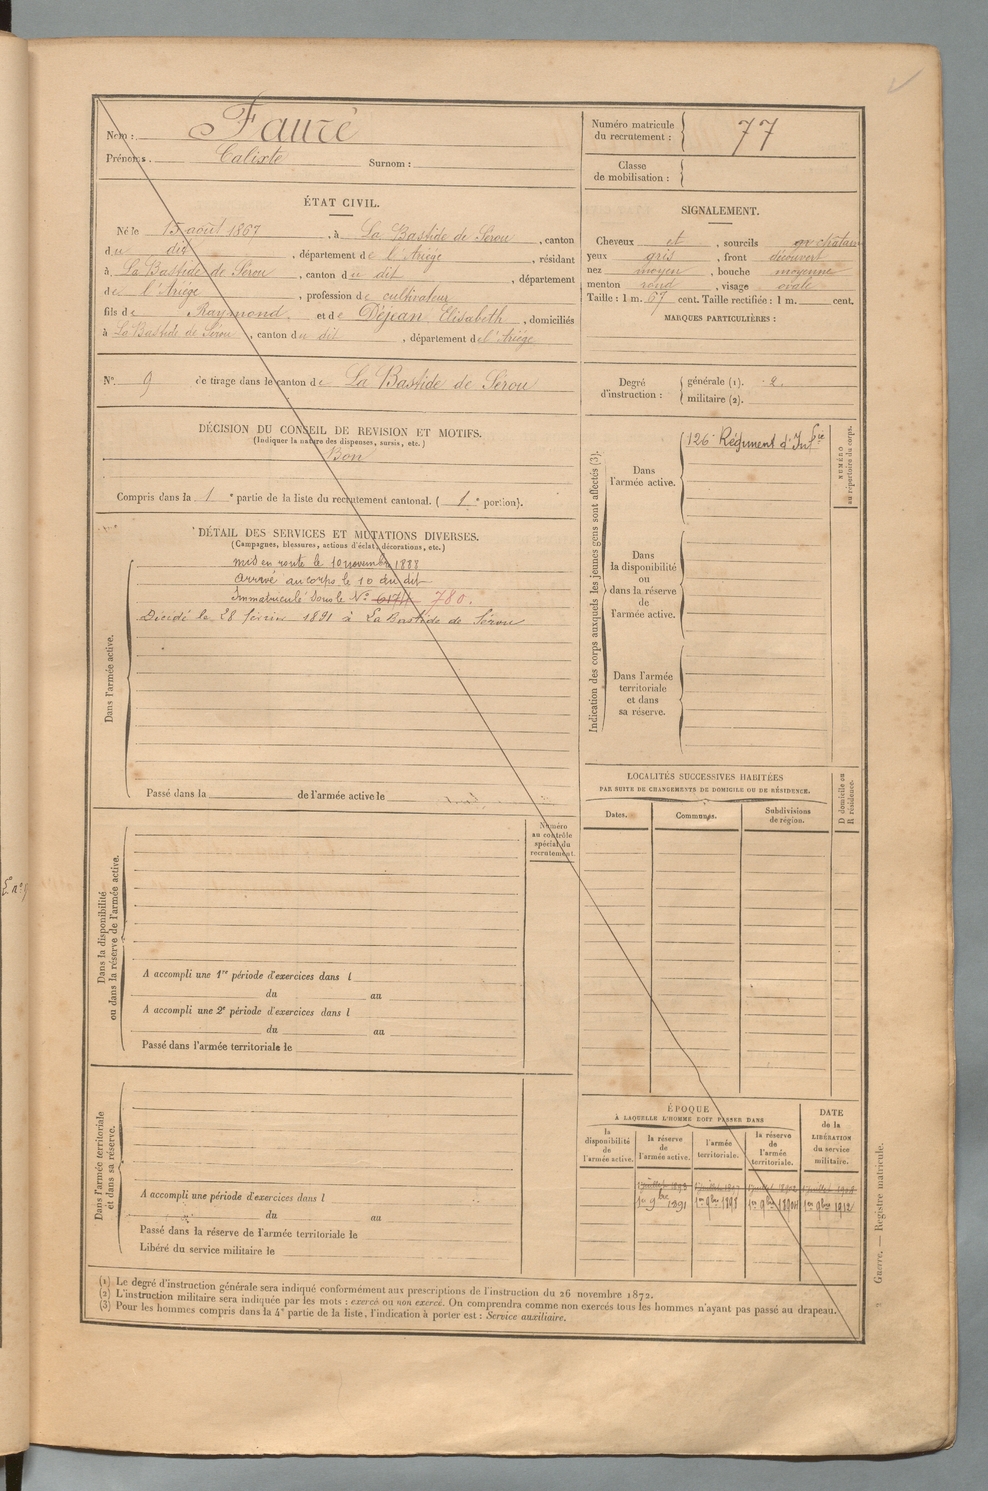 Nom : Fauré
Prénoms. Calixte Surnom :
Numéro matricule du recrutement : 77
Classe de mobilisation :
ÉTAT CIVIL.
Né le 15 août 1867, à La Bastide de Sérou, canton
du dit, département de l'Ariège, résidant
à La Bastide de Sérou, canton du dit, département
de l'Ariège, profession de cultivateur
fils de Raymond, et de Dejean Elisabeth, domiciliés
à La Bastide de Sérou, canton du dit, département de l'Ariège
SIGNALEMENT.
Cheveux et, sourcils gr châtain
yeux gris, front découvert
nez moyen, bouche moyenne
menton rond, visage ovale
Taille : 1 m. 67 cent. Taille rectifiée : 1 m. cent.
MARQUES PARTICULIÈRES :
N° 9 de tirage dans le canton de La Bastide de Sérou
Degré d'instruction : générale (1). 2.
militaire (2).
DÉCISION DU CONSEIL DE REVISION ET MOTIFS.
(Indiquer la nature des dispenses, sursis, etc.)
Bon
Compris dans la 1e partie de la liste du recrutement cantonal. ( 1e portion).
DÉTAIL DES SERVICES ET MUTATIONS DIVERSES.
(Campagnes, blessures, actions d'éclat, décorations, etc.)
Dans l'armée active.
mis en route le 10 novembre 1888
arrivé au corps le 10 du dit
Immatriculé sous le N° 780.
Décédé le 28 février 1891 à La Bastide de Sérou
Passé dans la de l'armée active le
Indication des corps auxquels les jeunes gens sont affectés (3).
Dans l'armée active.
126e Régiment d'Infie
NUMÉRO au répertoire du corps.
Dans la disponibilité ou dans la réserve de l'armée active.
Dans l'armée territoriale et dans sa réserve.
LOCALITÉS SUCCESSIVES HABITÉES
PAR SUITE DE CHANGEMENTS DE DOMICILE OU DE RÉSIDENCE.
Dates. Communes. Subdivisions de région.
D domicile ou R résidence.
Numéro au contrôle spécial du recrutement.
Dans la disponibilité ou dans la réserve de l'armée active.
A accompli une 1re période d'exercices dans l
du au
A accompli une 2e période d'exercices dans l
du au
Passé dans l'armée territoriale le
Dans l'armée territoriale et dans sa réserve.
A accompli une période d'exercices dans l
du au
Passé dans la réserve de l'armée territoriale le
Libéré du service militaire le
ÉPOQUE
À LAQUELLE L'HOMME DOIT PASSER DANS
la disponibilité de l'armée active.
la réserve de l'armée active.
l'armée territoriale.
la réserve de l'armée territoriale.
DATE de la LIBÉRATION du service militaire.
1er 9bre 1891 1er 9bre 1898 1er 9bre 1er 9bre 1912
(1) Le degré d'instruction générale sera indiqué conformément aux prescriptions de l'instruction du 26 novembre 1872.
(2) L'instruction militaire sera indiquée par les mots : exercé ou non exercé. On comprendra comme non exercés tous les hommes n'ayant pas passé au drapeau.
(3) Pour les hommes compris dans la 4e partie de la liste, l'indication à porter est : Service auxiliaire.
Guerre. — Registre matricule.